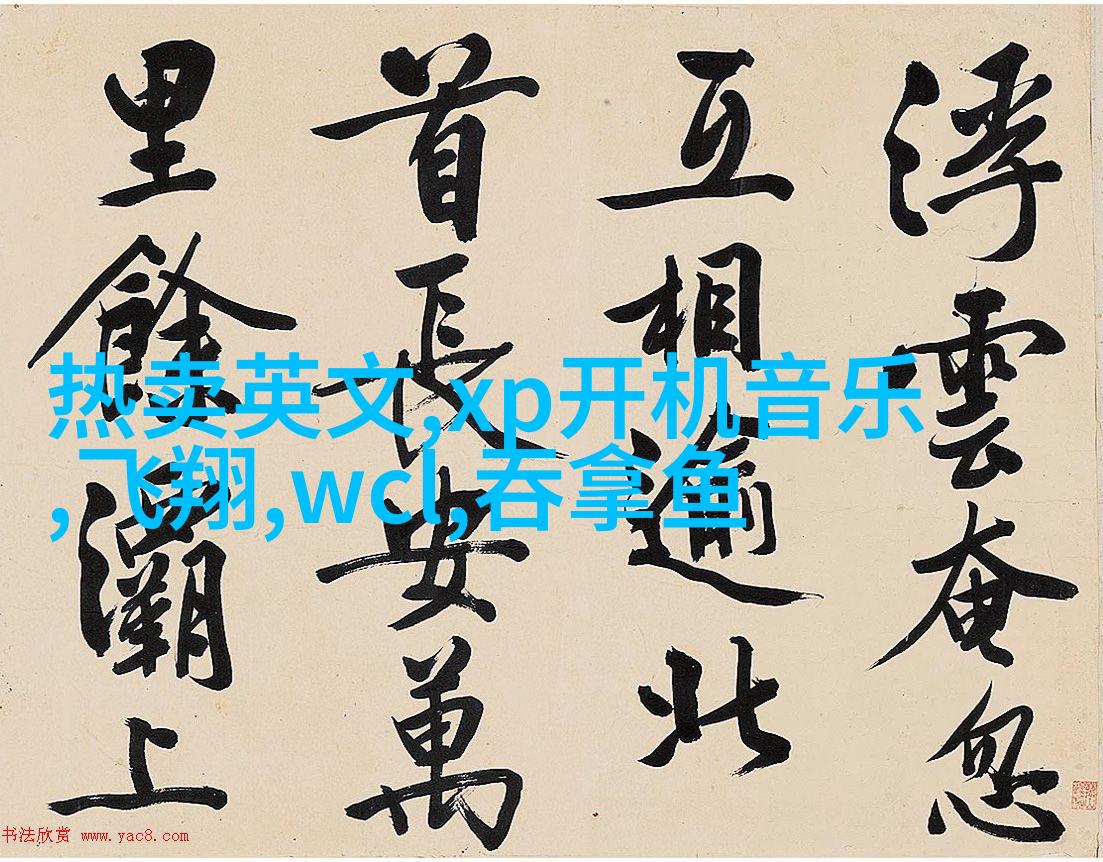 浮雲奄忽
互相逾北
首長安萬
里餘灞上
热卖英文,xp开机音乐
,飞翔,wcl,吞拿鱼
书法欣赏 www.yac8.com